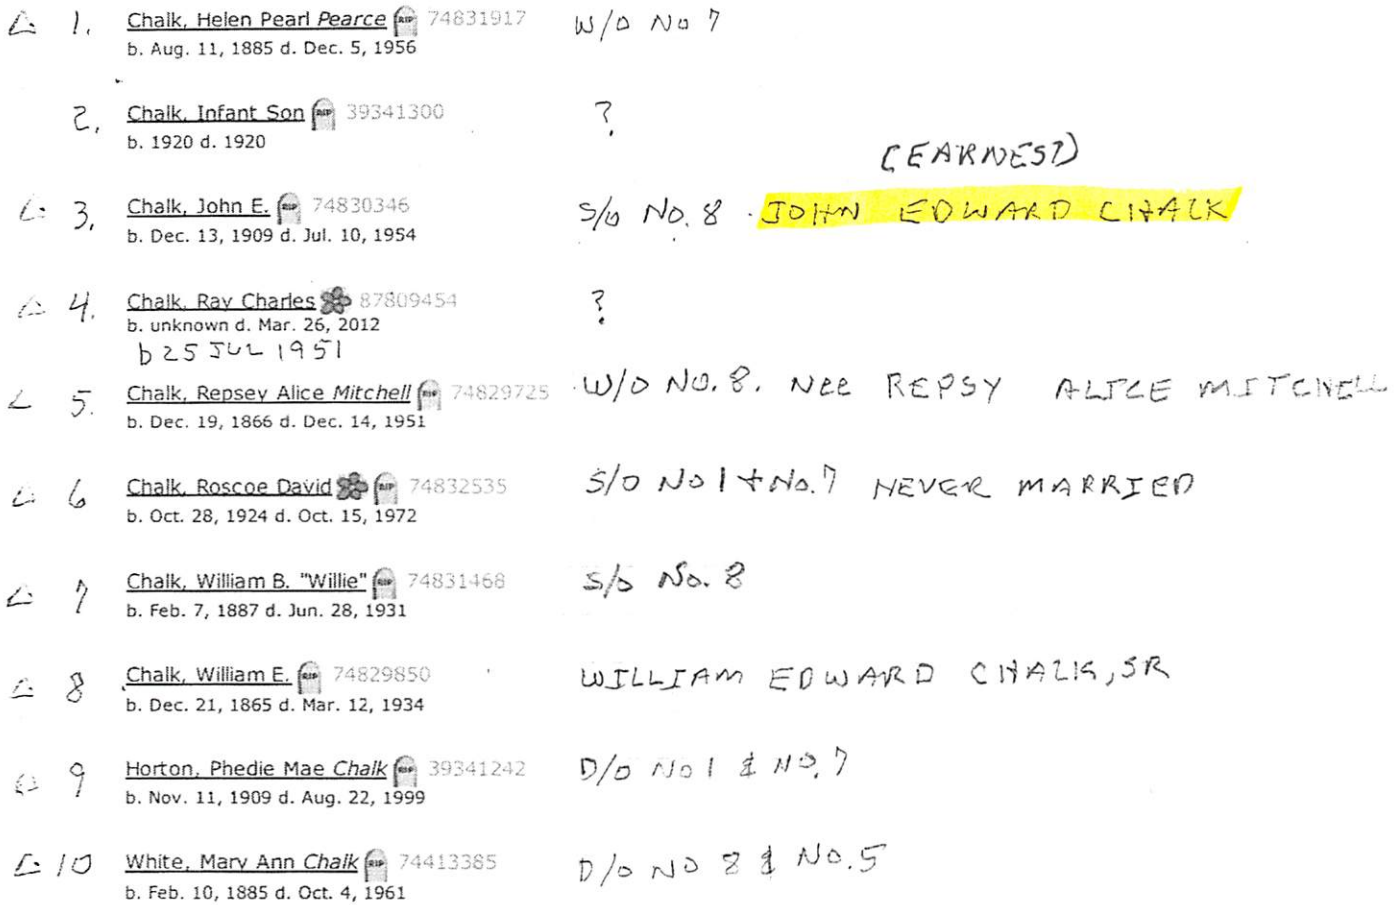 1. Chalk, Helen Pearl Pearce RIP 74831917 W/O No 7
b. Aug. 11, 1885 d. Dec. 5, 1956
2. Chalk, Infant Son RIP 39341300 ?
b. 1920 d. 1920
(EARNEST)
3. Chalk, John E. RIP 74830346 S/O No. 8 . JOHN EDWARD CHALK
b. Dec. 13, 1909 d. Jul. 10, 1954
4. Chalk, Ray Charles 87809454 ?
b. unknown d. Mar. 26, 2012
b 25 JUL 1951
5. Chalk, Repsey Alice Mitchell RIP 74829725 W/O NO. 8. Nee REPSY ALICE MITCHELL
b. Dec. 19, 1866 d. Dec. 14, 1951
6 Chalk, Roscoe David RIP 74832535 S/O No 1 + No. 7 NEVER MARRIED
b. Oct. 28, 1924 d. Oct. 15, 1972
7 Chalk, William B. "Willie" RIP 74831468 S/O No. 8
b. Feb. 7, 1887 d. Jun. 28, 1931
8 Chalk, William E. RIP 74829850 WILLIAM EDWARD CHALK, SR
b. Dec. 21, 1865 d. Mar. 12, 1934
9 Horton, Phedie Mae Chalk RIP 39341242 D/O No 1 & NO. 7
b. Nov. 11, 1909 d. Aug. 22, 1999
10 White, Mary Ann Chalk RIP 74413385 D/O NO 8 & No. 5
b. Feb. 10, 1885 d. Oct. 4, 1961